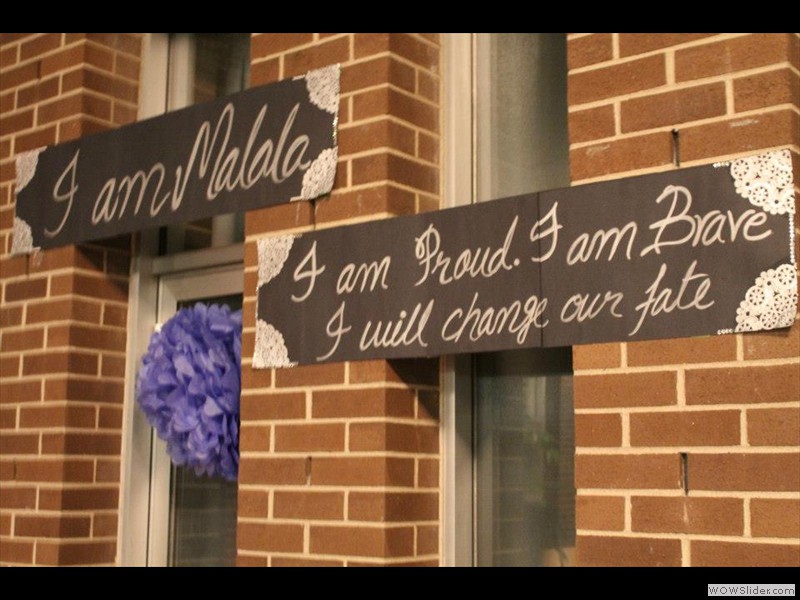 I am Malala
I am Proud. I am Brave
I will change our fate
WOWSlider.com